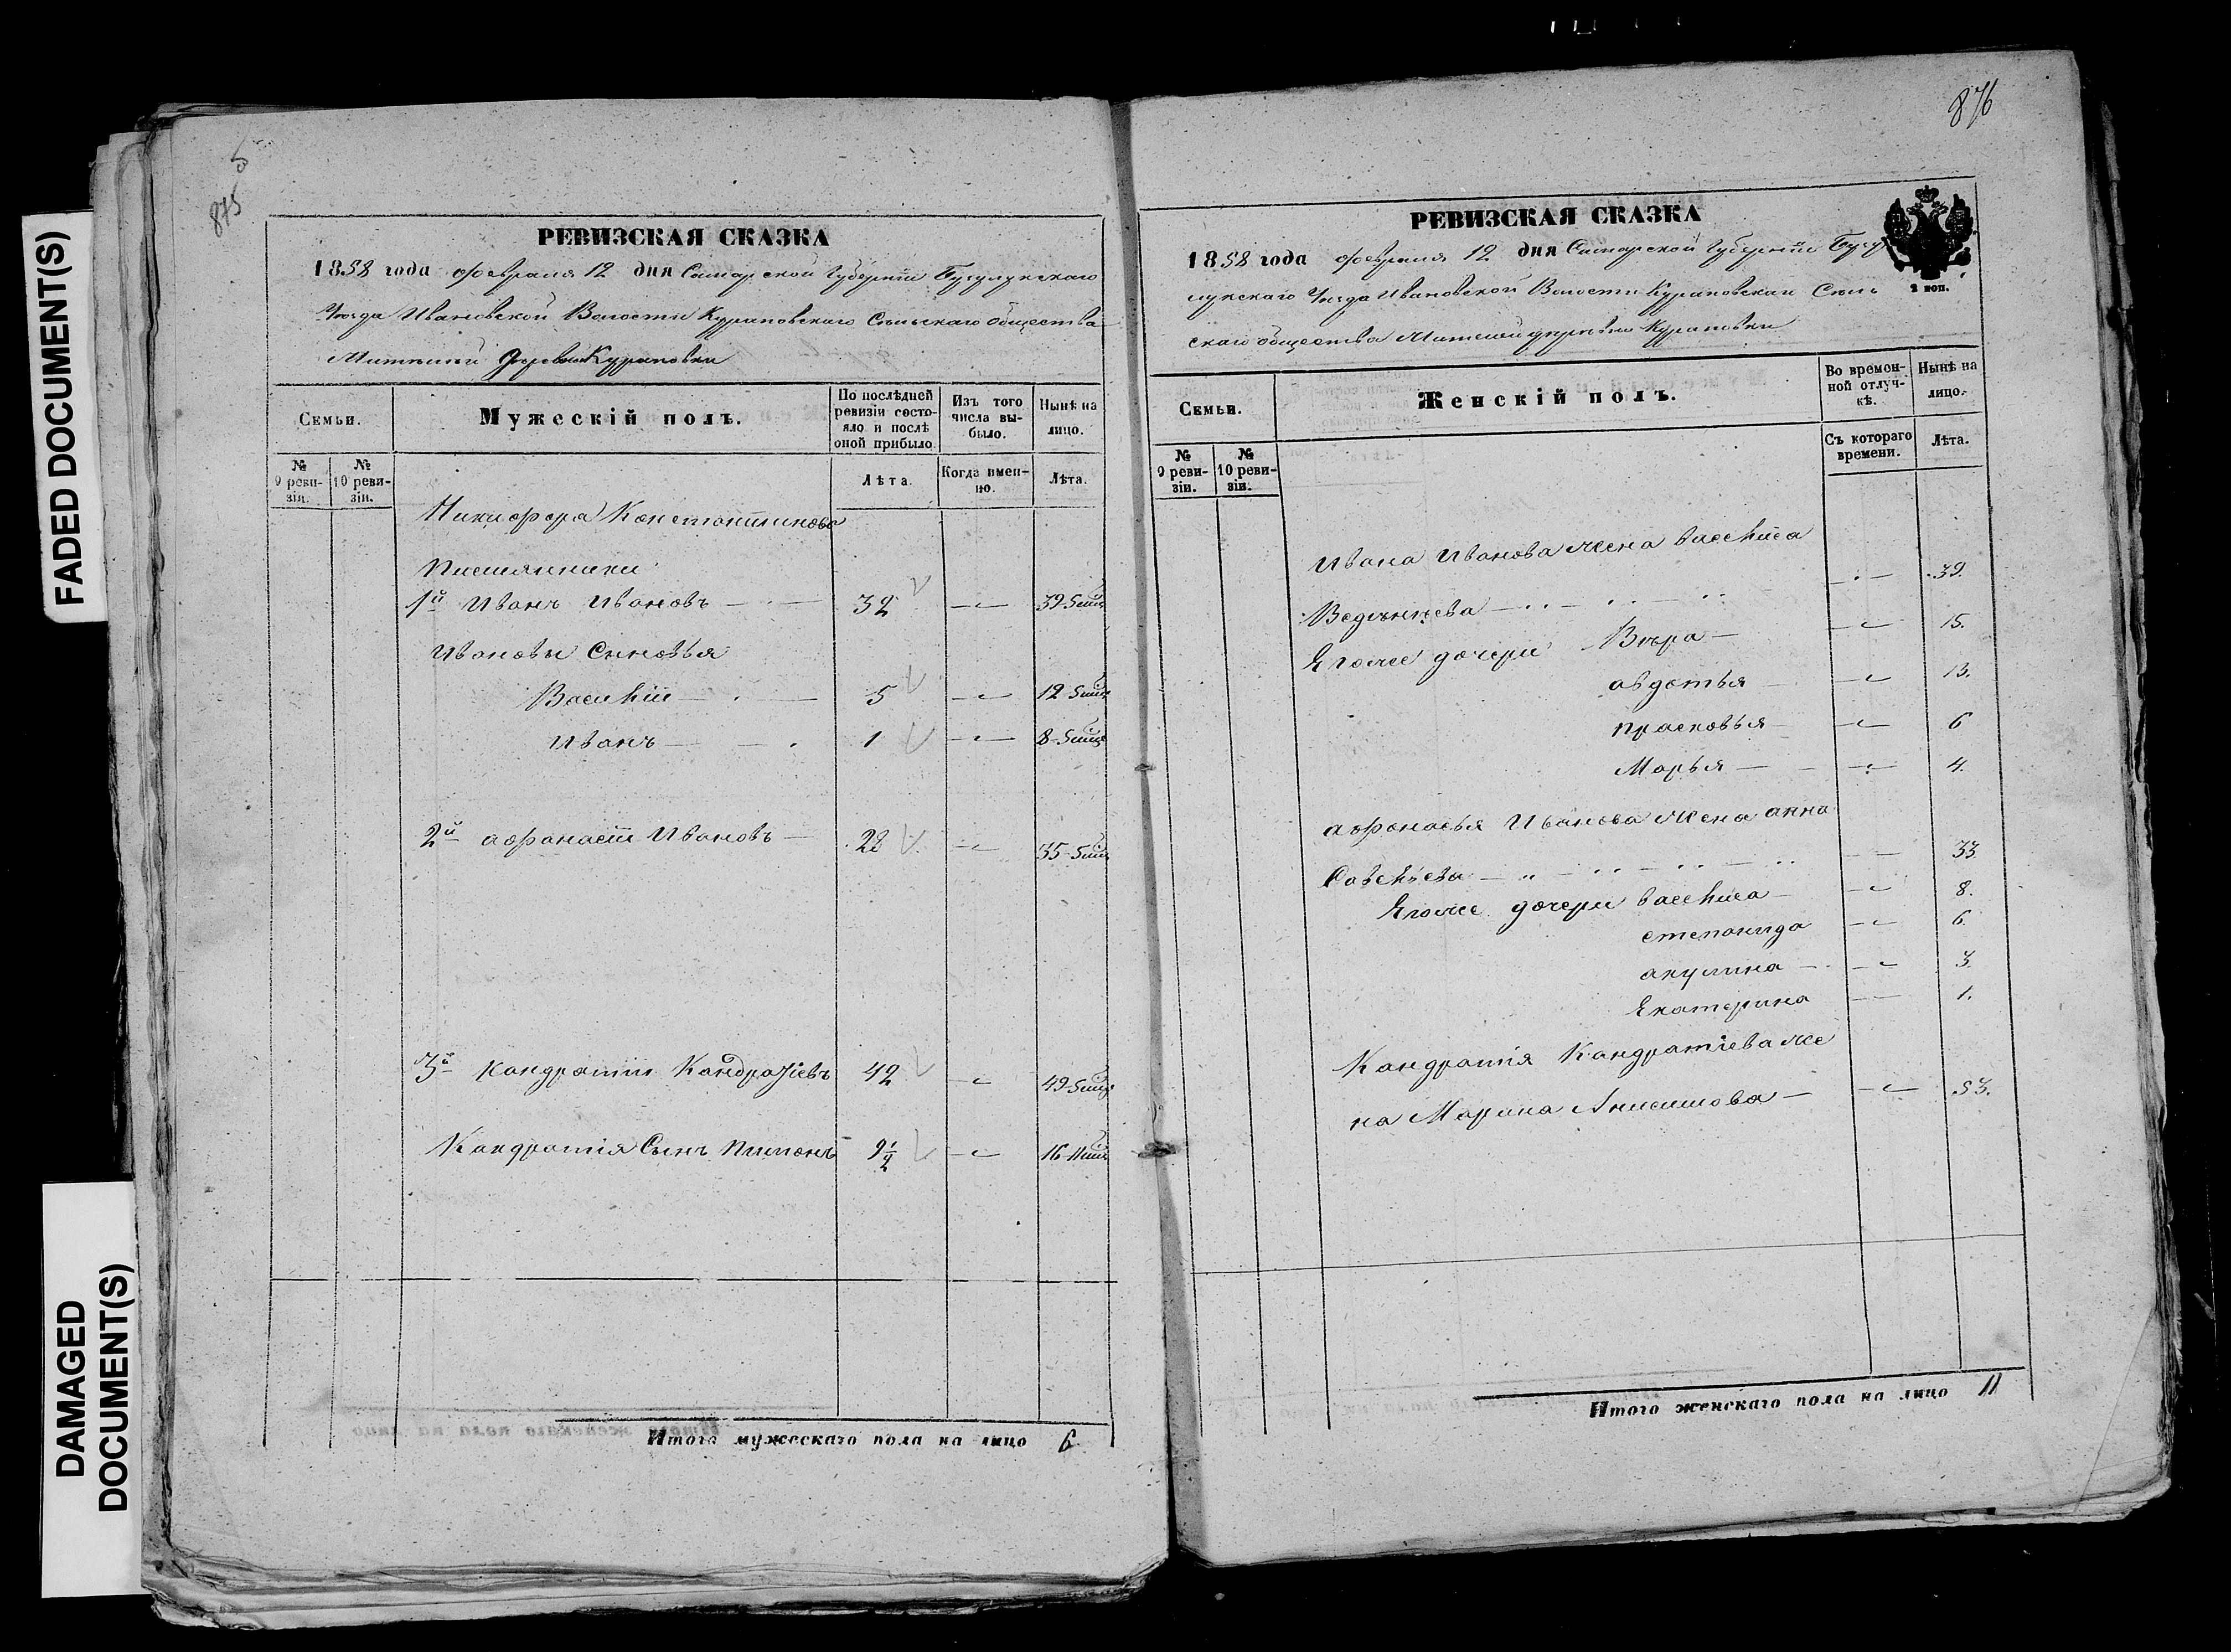 FADED DOCUMENT(S)
DAMAGED
DOCUMENT(S)
5
875
РЕВИЗСКАЯ СКАЗКА
1858 года февраля 12 дня Самарской Губернiи Бугулукскаго
Уѣзда Ивановской Волости Кураповскаго Сельскаго Общества
деревни Кураповки
Семьи.
Мужескiй полъ.
По послѣдней ревизiи состояло и послѣ оной прибыло.
Изъ того числа выбыло.
Нынѣ на лицо.
№ 9 ревизiи.
№ 10 ревизiи.
Лѣта.
Когда именно.
Лѣта.
Никифора Константинова
Племянники
1й Иванъ Ивановъ 32 39-5мiц
Ивановы Сыновья
Василiй 5 12-5мiц
Иванъ 1 8-5мiц
2й афанасiй Ивановъ 28 35-5мiц
3й Кандратiй Кандратiевъ 42 49-5мiц
Кандратiя Сынъ Пименъ 9 1/2 16-11мiц
Итого мужескаго пола на лицо 6
876
РЕВИЗСКАЯ СКАЗКА
2 коп.
1858 года февраля 12 дня Самарской Губернiи Бугу
лукскаго Уѣзда Ивановской Волости Кураповскаго Сель
скаго общества деревни Кураповки
Семьи.
Женскiй полъ.
Во временной отлучкѣ.
Нынѣ на лицо.
№ 9 ревизiи.
№ 10 ревизiи.
Съ котораго времени.
Лѣта.
Ивана Иванова жена васелиса
39.
Егоже дочери Вѣра 15.
авдотья 13.
прасковья 6
Марья 4.
афонасья Иванова жена анна
Савельева 33.
Егоже дочери васелиса 8.
степонида 6.
акулина 3.
Екатерина 1.
Кандратiя Кандратiева же
на Марина Анисимова 53.
Итого женскаго пола на лицо 11